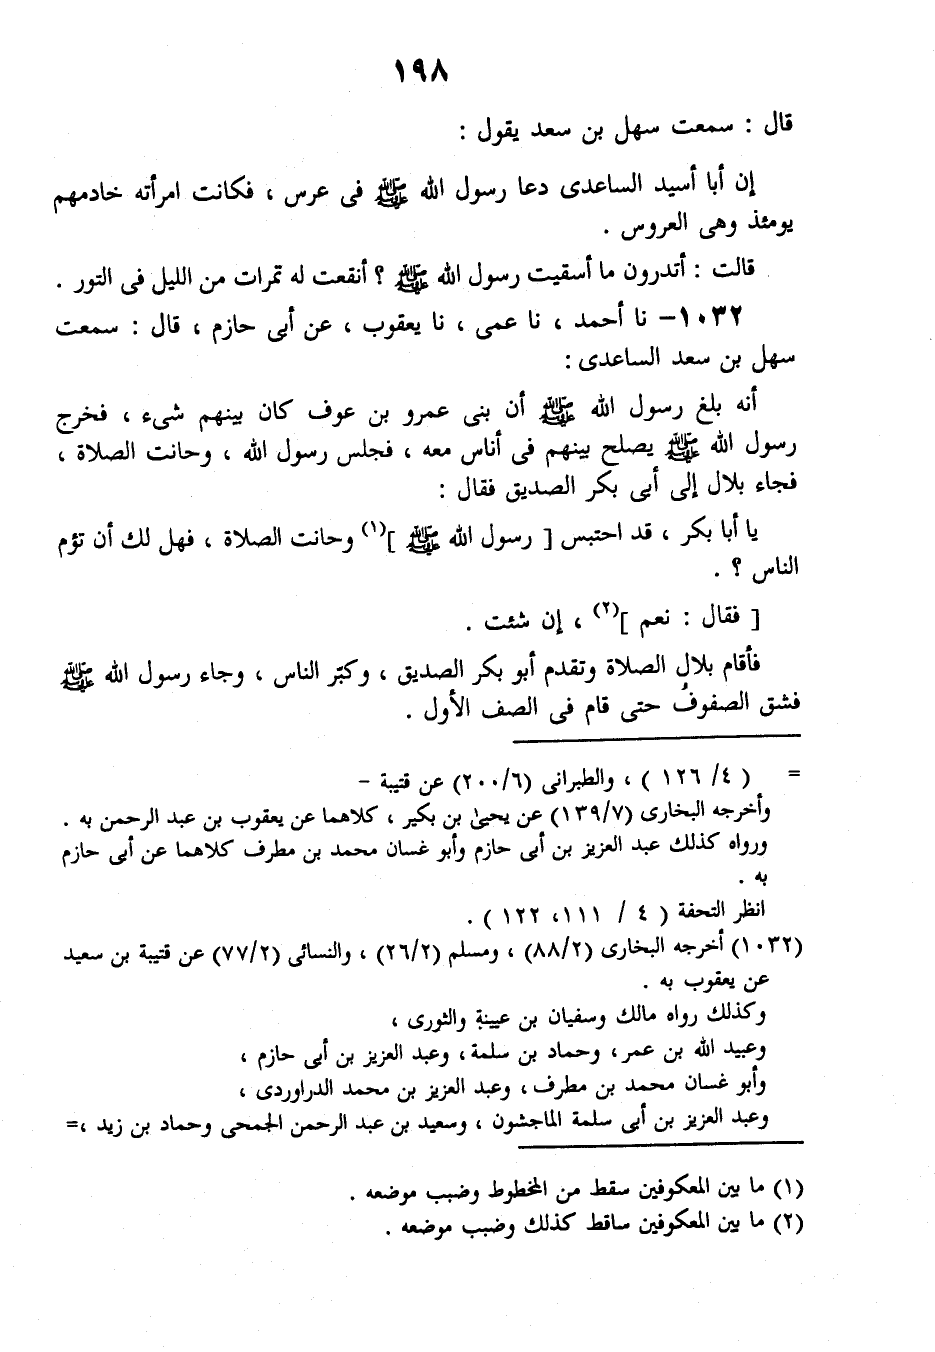 ١٩٨
قال : سمعت سهل بن سعد يقول :
إن أبا أسيد الساعدى دعا رسول الله ﷺ فى عرس ، فكانت امرأته خادمهم
يومئذ وهى العروس .
قالت : أتدرون ما أسقيت رسول الله ﷺ ؟ أنقعت له تمرات من الليل فى التور .
١٠٣٢– نا أحمد ، نا عمى ، نا يعقوب ، عن أبى حازم ، قال : سمعت
سهل بن سعد الساعدى :
أنه بلغ رسول الله ﷺ أن بنى عمرو بن عوف كان بينهم شىء ، فخرج
رسول الله ﷺ يصلح بينهم فى أناس معه ، فجلس رسول الله ، وحانت الصلاة ،
فجاء بلال إلى أبى بكر الصديق فقال :
يا أبا بكر ، قد احتبس [ رسول الله ﷺ ](١) وحانت الصلاة ، فهل لك أن تؤم
الناس ؟ .
[ فقال : نعم ](٢) ، إن شئت .
فأقام بلال الصلاة وتقدم أبو بكر الصديق ، وكبّر الناس ، وجاء رسول الله ﷺ
فشق الصفوفُ حتى قام فى الصف الأول .
= ( ٤/ ١٢٦ ) ، والطبرانى (٢٠٠/٦) عن قتيبة –
وأخرجه البخارى (١٣٩/٧) عن يحيىٰ بن بكير ، كلاهما عن يعقوب بن عبد الرحمن به .
ورواه كذلك عبد العزيز بن أبى حازم وأبو غسان محمد بن مطرف كلاهما عن أبى حازم
به .
انظر التحفة ( ٤ / ١١١، ١٢٢ ) .
(١٠٣٢) أخرجه البخارى (٨٨/٢) ، ومسلم (٢٦/٢) ، والنسائى (٧٧/٢) عن قتيبة بن سعيد
عن يعقوب به .
وكذلك رواه مالك وسفيان بن عيينة والثورى ،
وعبيد الله بن عمر، وحماد بن سلمة، وعبد العزيز بن أبى حازم ،
وأبو غسان محمد بن مطرف، وعبد العزيز بن محمد الدراوردى ،
وعبد العزيز بن أبى سلمة الماجشون ، وسعيد بن عبد الرحمن الجمحى وحماد بن زيد ،=
(١) ما بين المعكوفين سقط من المخطوط وضبب موضعه .
(٢) ما بين المعكوفين ساقط كذلك وضبب موضعه .